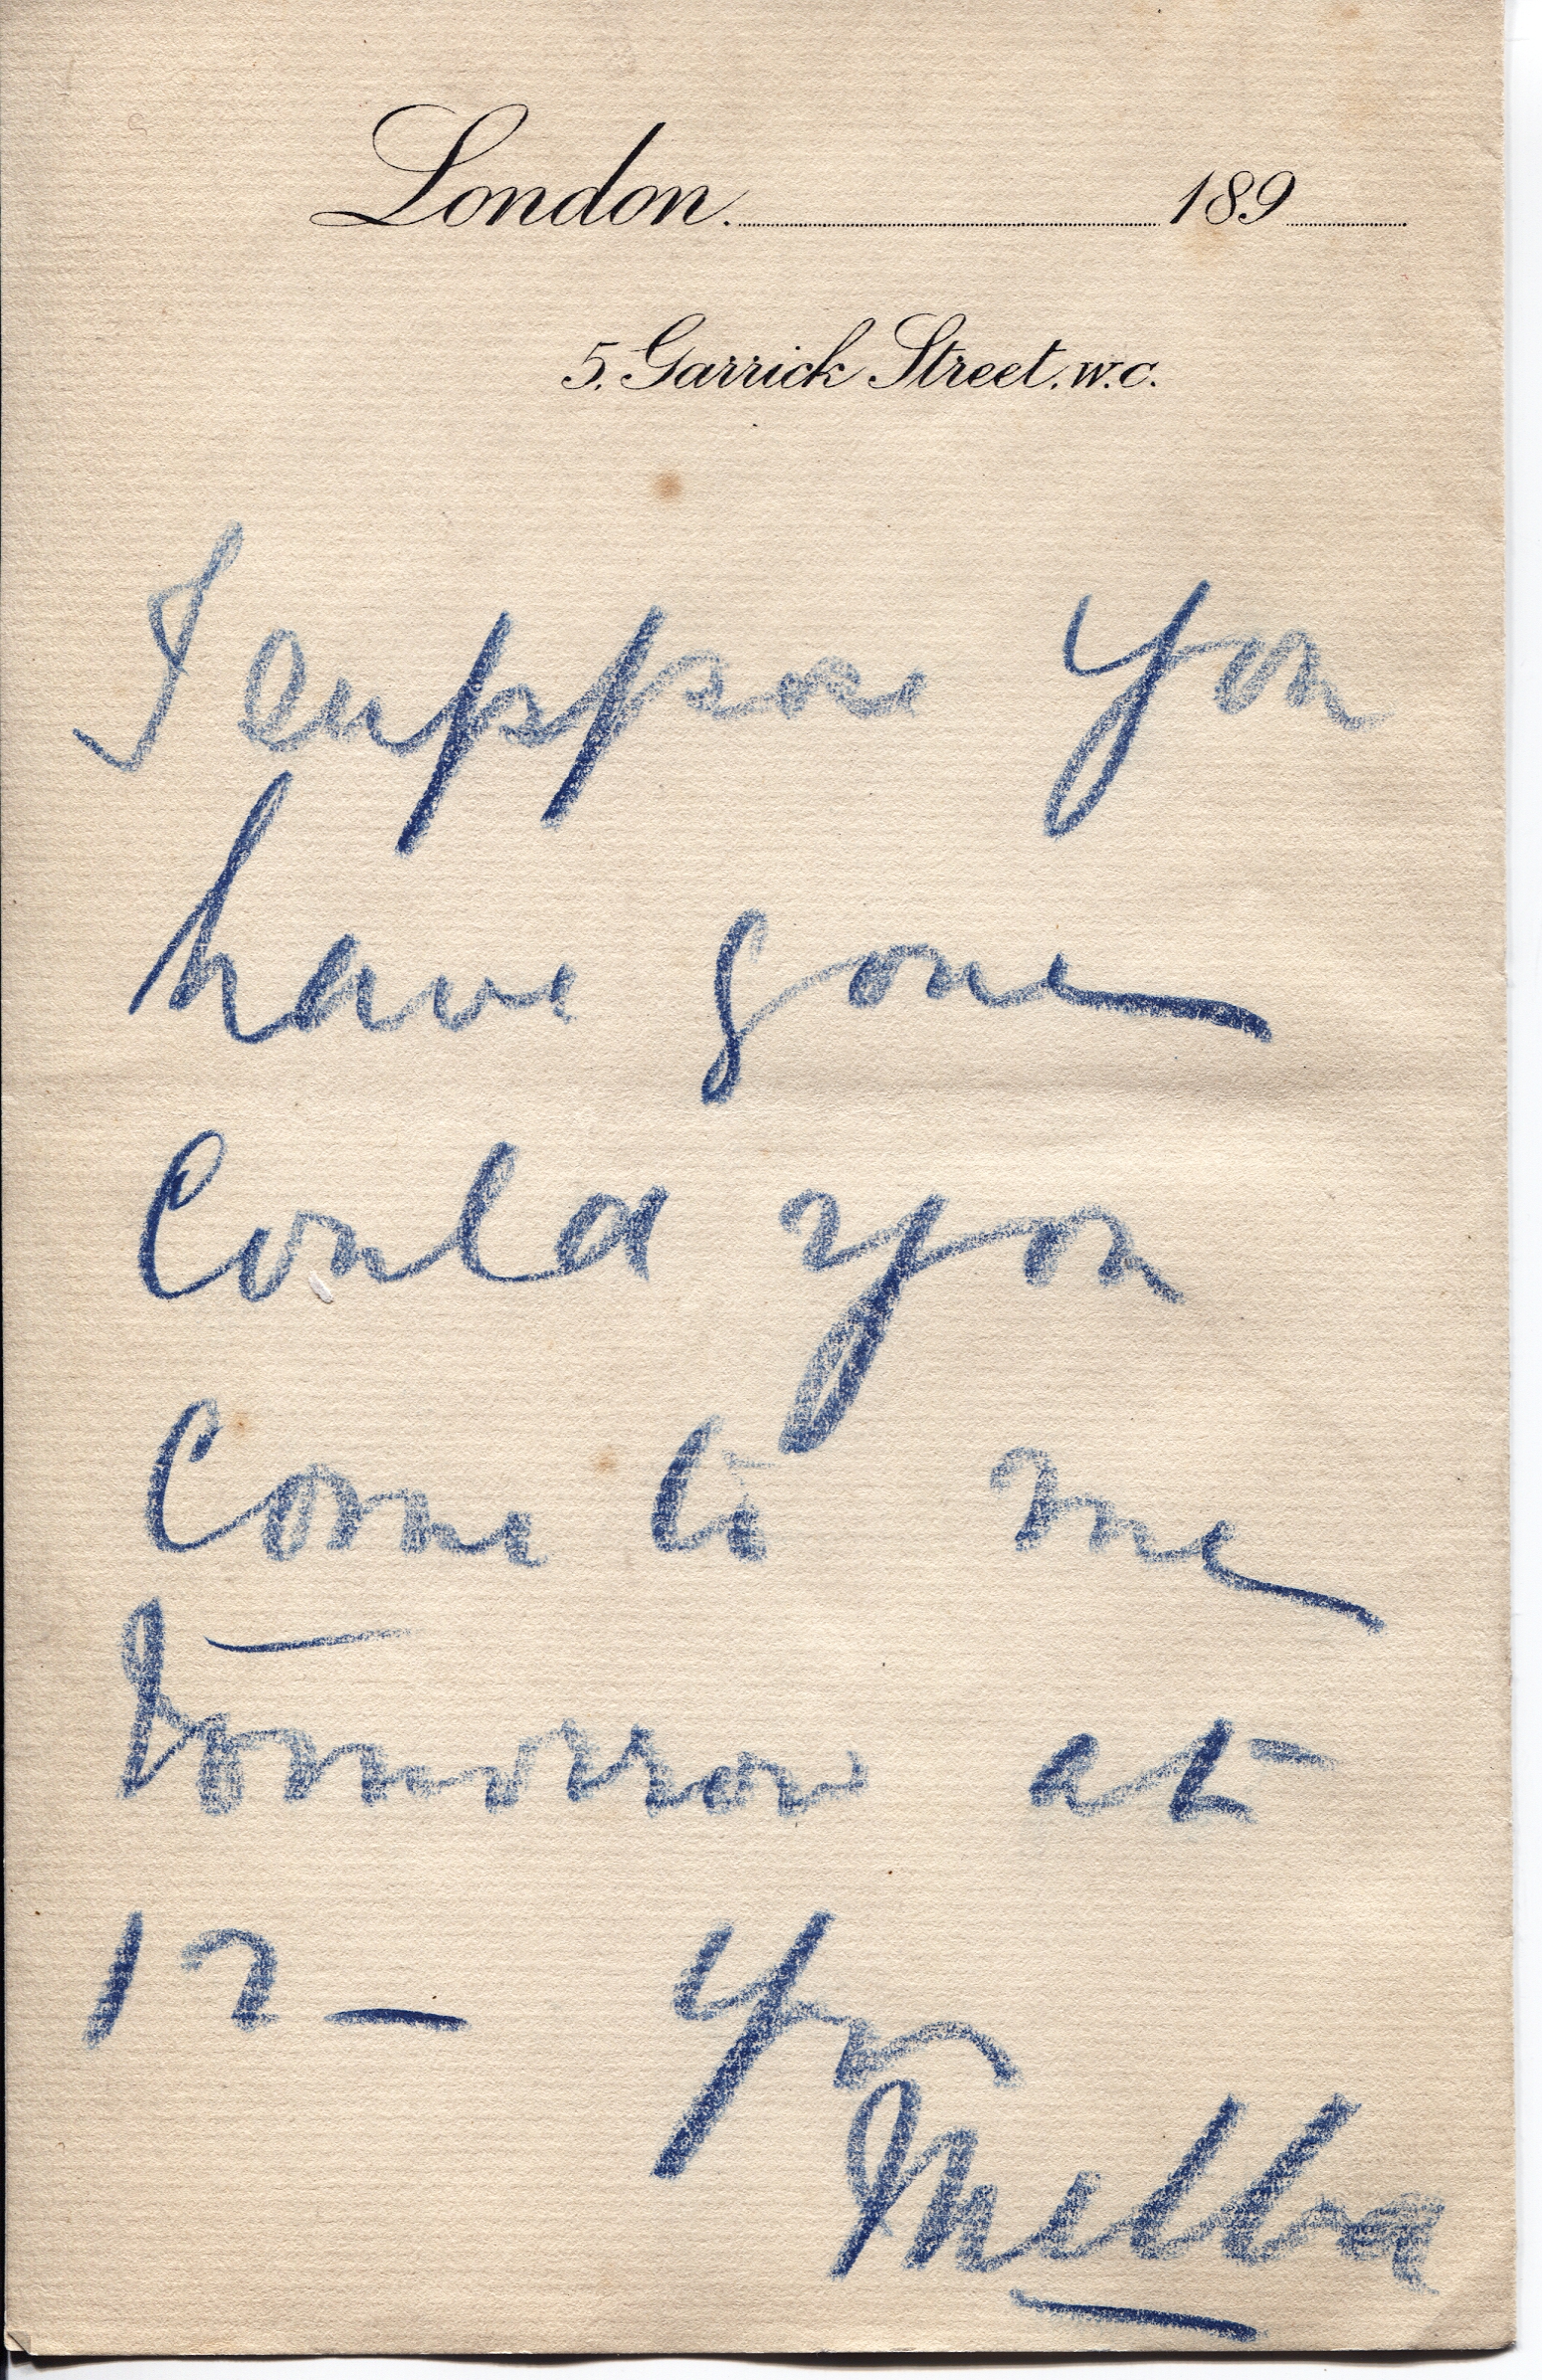 London. 189
5, Garrick Street. W.C.
I suppose you
have gone
Could you
Come to me
Tomorrow at
12 — Yr
Melba